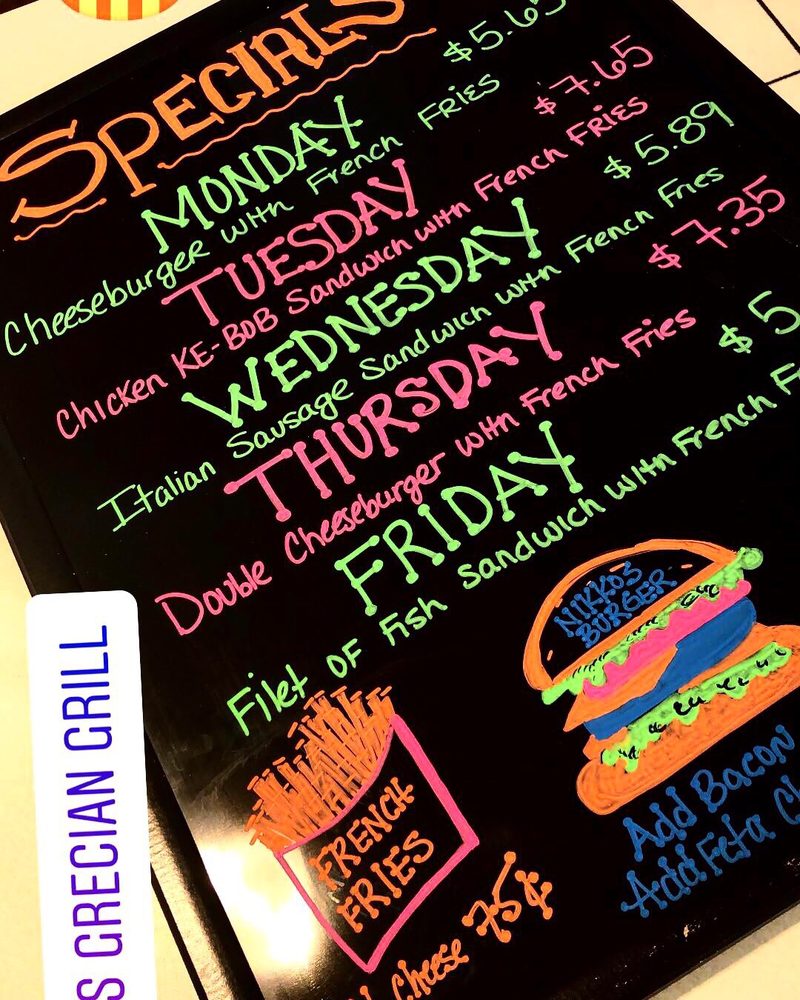 SPECIALS
MONDAY
Cheeseburger with French FRIES $5.65
TUESDAY
Chicken KE-BOB Sandwich with French FRIES $7.65
WEDNESDAY
Italian Sausage Sandwich with French Fries $5.89
THURSDAY
Double Cheeseburger with French Fries $7.35
FRIDAY
Filet OF Fish Sandwich with French $5
NIKKOS
BURGER
FRENCH
FRIES
Add Bacon
Add Feta
Cheese 75¢
S GRECIAN GRILL